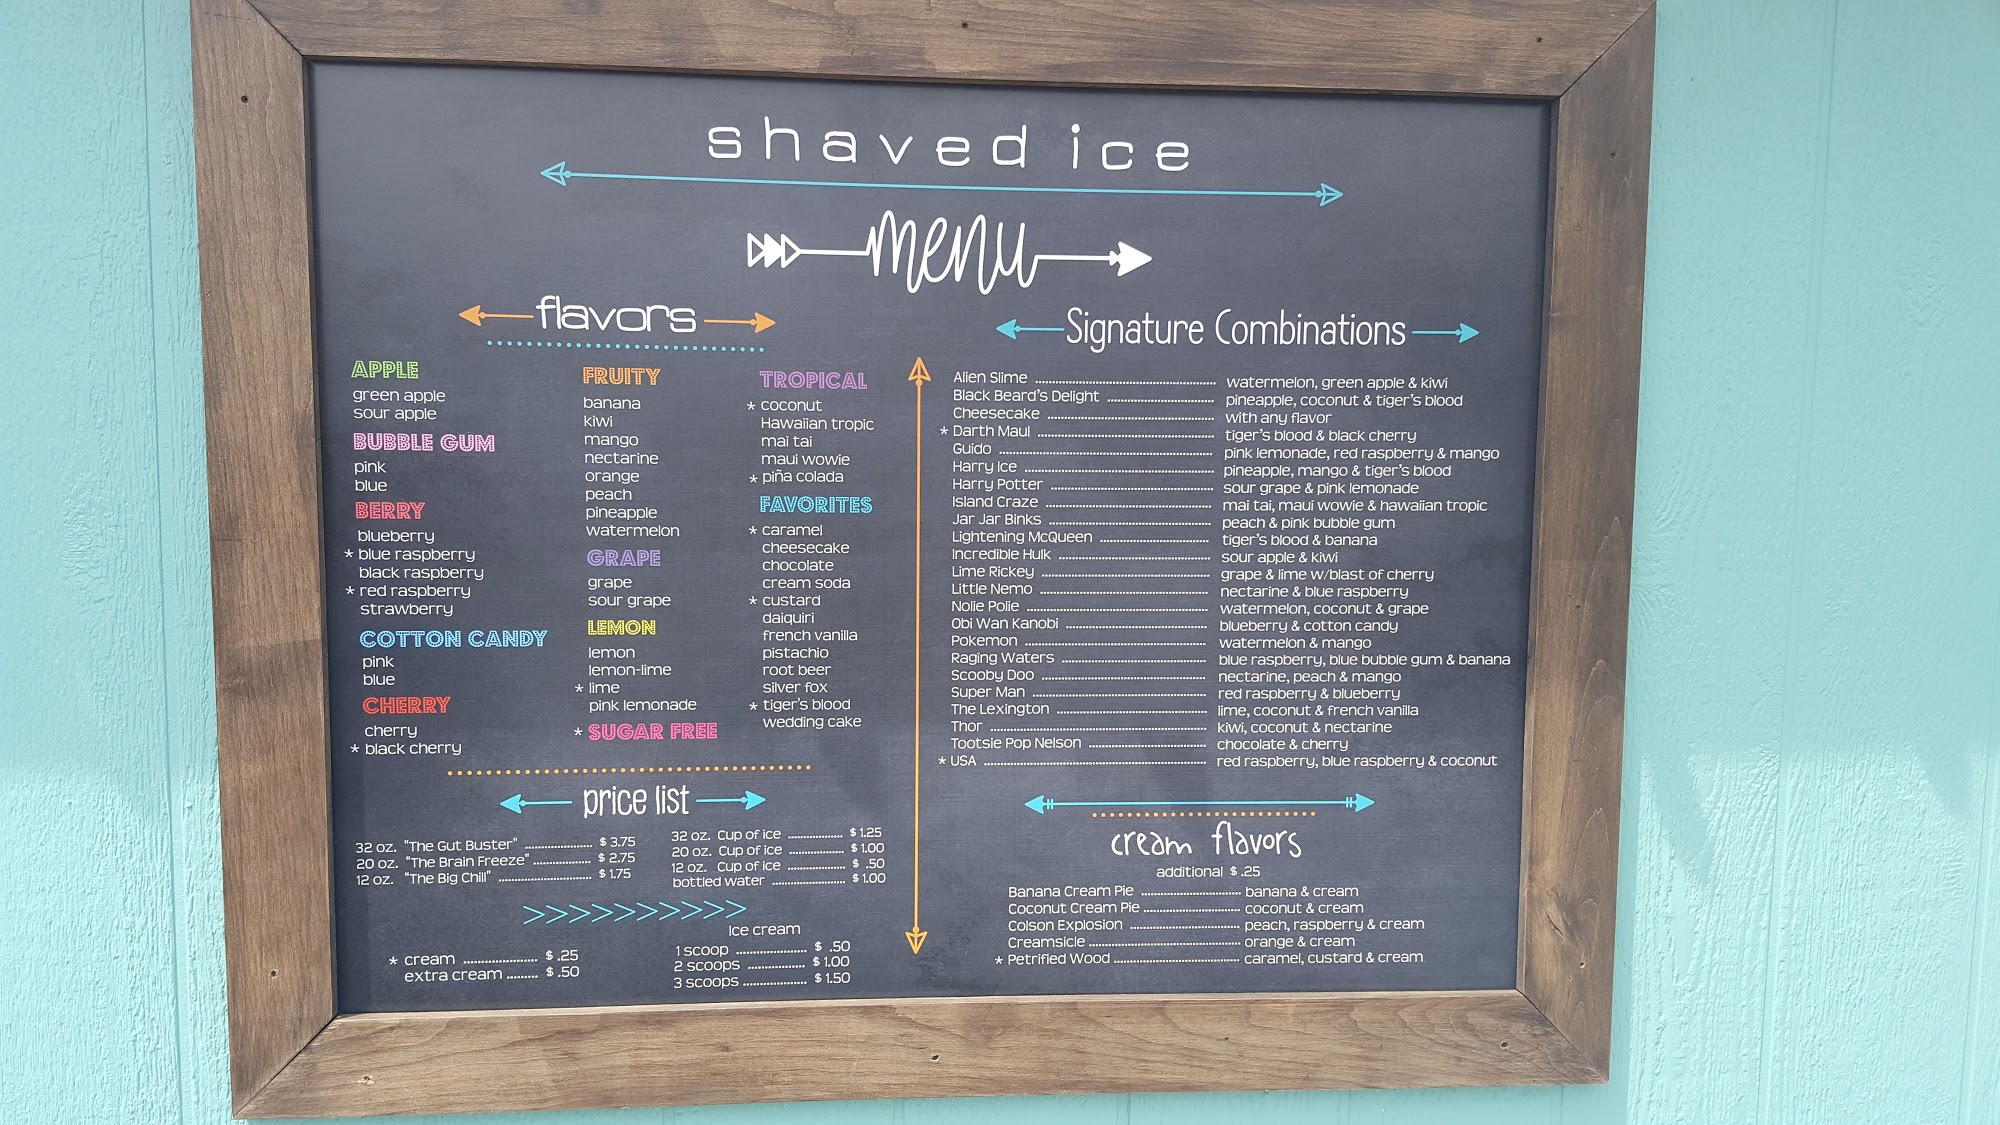 shaved ice
menu
flavors
APPLE
green apple
sour apple
BUBBLE GUM
pink
blue
BERRY
blueberry
* blue raspberry
black raspberry
* red raspberry
strawberry
COTTON CANDY
pink
blue
CHERRY
cherry
* black cherry
FRUITY
banana
kiwi
mango
nectarine
orange
peach
pineapple
watermelon
GRAPE
grape
sour grape
LEMON
lemon
lemon-lime
* lime
pink lemonade
* SUGAR FREE
TROPICAL
* coconut
Hawaiian tropic
mai tai
maui wowie
* piña colada
FAVORITES
* caramel
cheesecake
chocolate
cream soda
* custard
daiquiri
french vanilla
pistachio
root beer
silver fox
* tiger's blood
wedding cake
price list
32 oz. "The Gut Buster" ........ $ 3.75
20 oz. "The Brain Freeze" ........ $ 2.75
12 oz. "The Big Chill" ........ $ 1.75
32 oz. Cup of ice ........ $ 1.25
20 oz. Cup of ice ........ $ 1.00
12 oz. Cup of ice ........ $ .50
bottled water ........ $ 1.00
>>>>>>>>>>
* cream ........ $ .25
extra cream ........ $ .50
Ice cream
1 scoop ........ $ .50
2 scoops ........ $ 1.00
3 scoops ........ $ 1.50
Signature Combinations
Alien Slime ........ watermelon, green apple & kiwi
Black Beard's Delight ........ pineapple, coconut & tiger's blood
Cheesecake ........ with any flavor
* Darth Maul ........ tiger's blood & black cherry
Guido ........ pink lemonade, red raspberry & mango
Harry Ice ........ pineapple, mango & tiger's blood
Harry Potter ........ sour grape & pink lemonade
Island Craze ........ mai tai, maui wowie & hawaiian tropic
Jar Jar Binks ........ peach & pink bubble gum
Lightening McQueen ........ tiger's blood & banana
Incredible Hulk ........ sour apple & kiwi
Lime Rickey ........ grape & lime w/blast of cherry
Little Nemo ........ nectarine & blue raspberry
Nolie Polie ........ watermelon, coconut & grape
Obi Wan Kanobi ........ blueberry & cotton candy
Pokemon ........ watermelon & mango
Raging Waters ........ blue raspberry, blue bubble gum & banana
Scooby Doo ........ nectarine, peach & mango
Super Man ........ red raspberry & blueberry
The Lexington ........ lime, coconut & french vanilla
Thor ........ kiwi, coconut & nectarine
Tootsie Pop Nelson ........ chocolate & cherry
* USA ........ red raspberry, blue raspberry & coconut
cream flavors
additional $ .25
Banana Cream Pie ........ banana & cream
Coconut Cream Pie ........ coconut & cream
Colson Explosion ........ peach, raspberry & cream
Creamsicle ........ orange & cream
* Petrified Wood ........ caramel, custard & cream